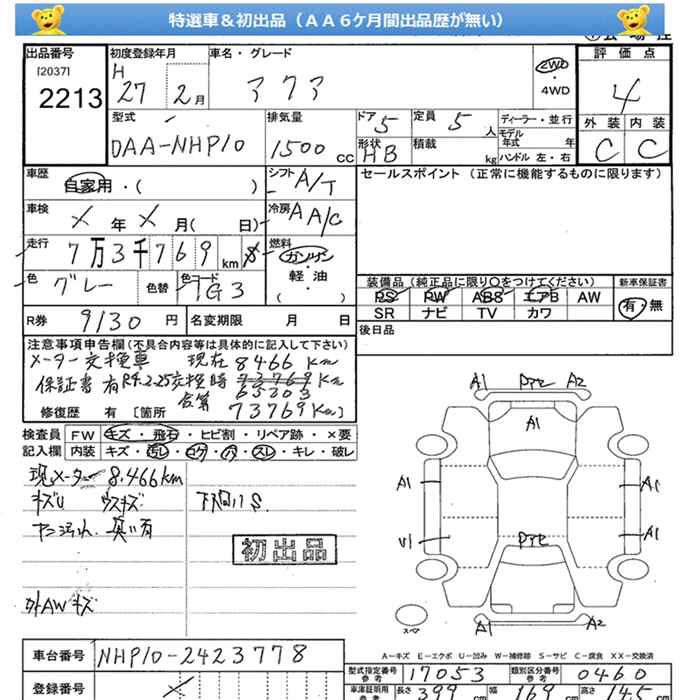 特選車＆初出品（ＡＡ６ケ月間出品歴が無い）
出品番号 初度登録年月 車名・グレード 評価点
[2037] H 2WD
2213 27 2月 アクア ・4WD 4
型式 排気量 ドア 5 定員 5人 ディーラー・並行 外装 内装
DAA-NHP10 1500cc 形状 HB 積載 kg モデル年式 年 ハンドル 左・右 C C
車歴 シフト A/T セールスポイント（正常に機能するものに限ります）
自家用・( )
車検 冷房 AA/C
X年 X月( 日)
走行 燃料
7万3千769km ガソリン
色 グレー 色替 色コード 1G3 軽・油 ( )
装備品（純正品に限り○をつけてください） 新車保証書
PS PW ABS エアB AW 有・無
SR ナビ TV カワ
R券 9130円 名変期限 月 日 後日品
注意事項申告欄(不具合内容等は具体的に記入して下さい)
メーター交換車 現在 8466Km
保証書 有 R4.2.25交換時 73769Km
65303
合算 73769Km
修復歴 有 [箇所
検査員 FW キズ・飛石・ヒビ割・リペア跡・×要
記入欄 内装 キズ・汚レ・コゲ・穴・スレ・キレ・破レ
現メーター 8.466km
キズU ウスキズ 下回りS
外AWキズ
初出品
A1 A2
A1
A1 A1
U1 A1
スペア A1 A2
A－キズ E－エクボ U－凹み W－補修跡 S－サビ C－腐食 XX－交換済
車台番号 NHP10-2423778
型式指定番号 参考 17053 類別区分番号 参考 0460
登録番号
車庫証明用 参考 長さ 399cm 幅 169cm 高さ 145cm